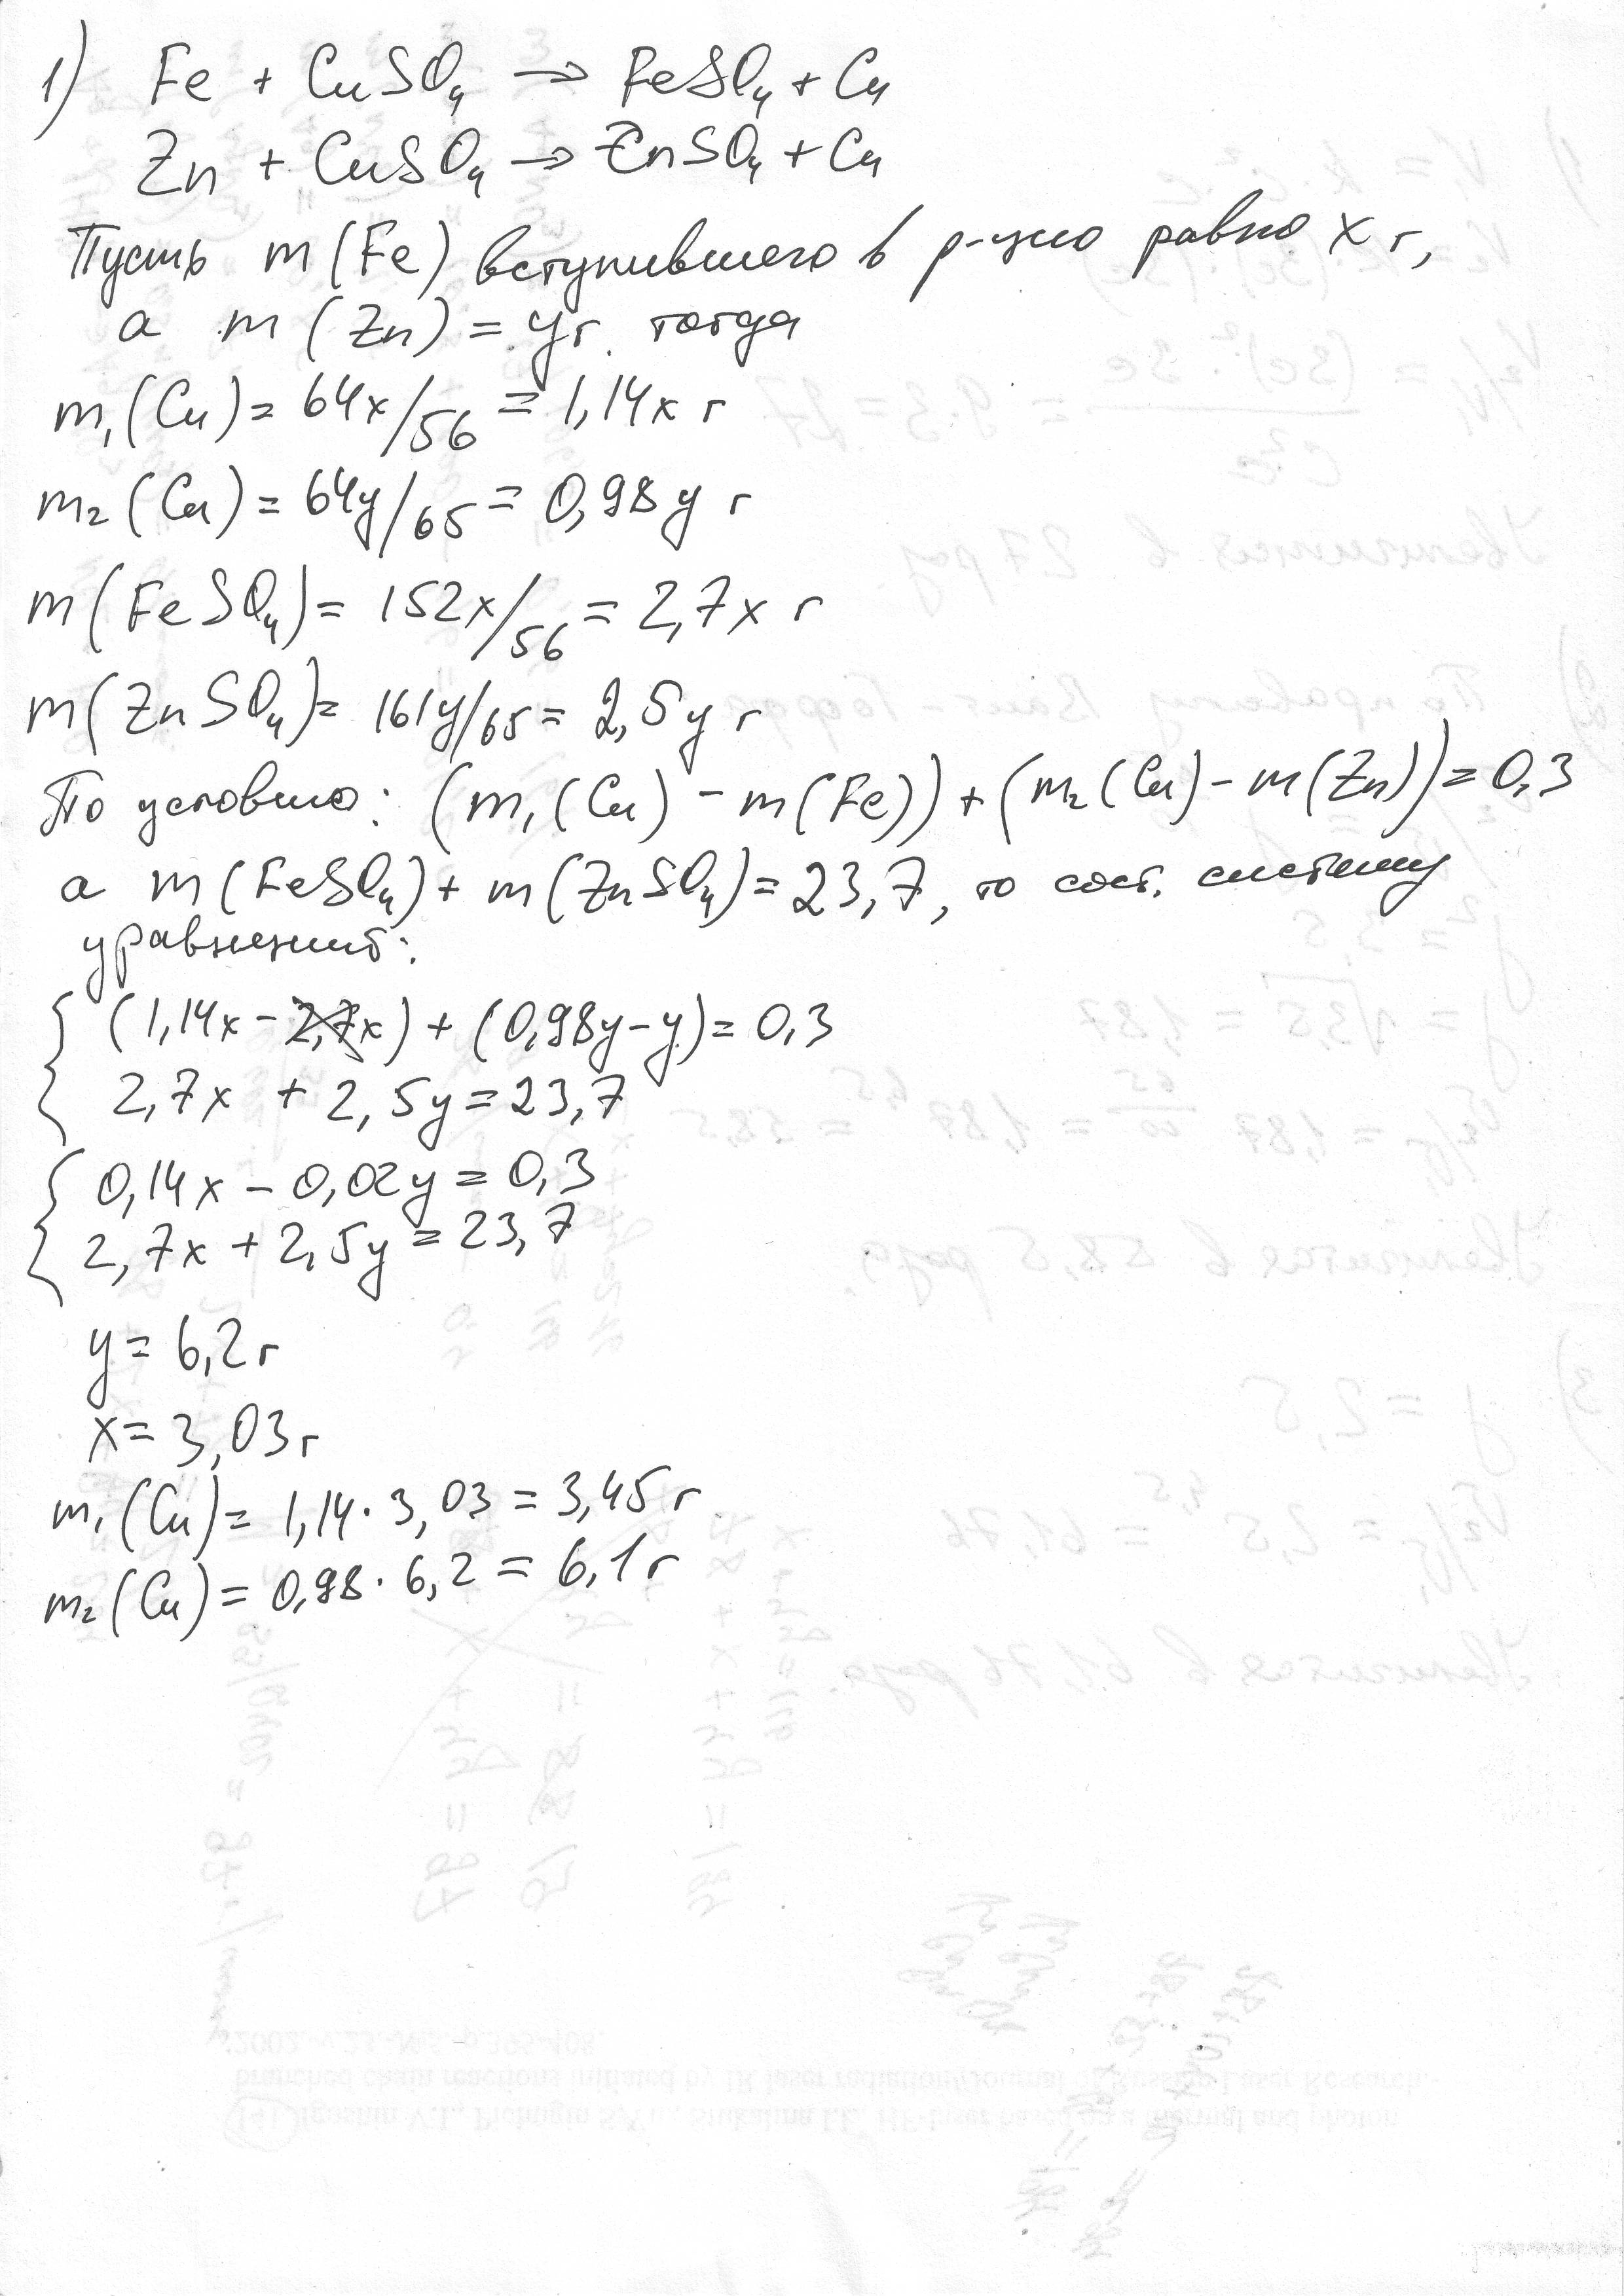 1) Fe + CuSO₄ → FeSO₄ + Cu
Zn + CuSO₄ → ZnSO₄ + Cu
Пусть m(Fe) вступившего в р-цию равно x г,
а m(Zn) = y г. тогда
m₁(Cu) = 64x/56 = 1,14x г
m₂(Cu) = 64y/65 = 0,98y г
m(FeSO₄) = 152x/56 = 2,7x г
m(ZnSO₄) = 161y/65 = 2,5y г
По условию: (m₁(Cu) - m(Fe)) + (m₂(Cu) - m(Zn)) = 0,3
а m(FeSO₄) + m(ZnSO₄) = 23,7, то сост. систему
уравнений:
(1,14x - x) + (0,98y - y) = 0,3
2,7x + 2,5y = 23,7
0,14x - 0,02y = 0,3
2,7x + 2,5y = 23,7
y = 6,2 г
x = 3,03 г
m₁(Cu) = 1,14 · 3,03 = 3,45 г
m₂(Cu) = 0,98 · 6,2 = 6,1 г